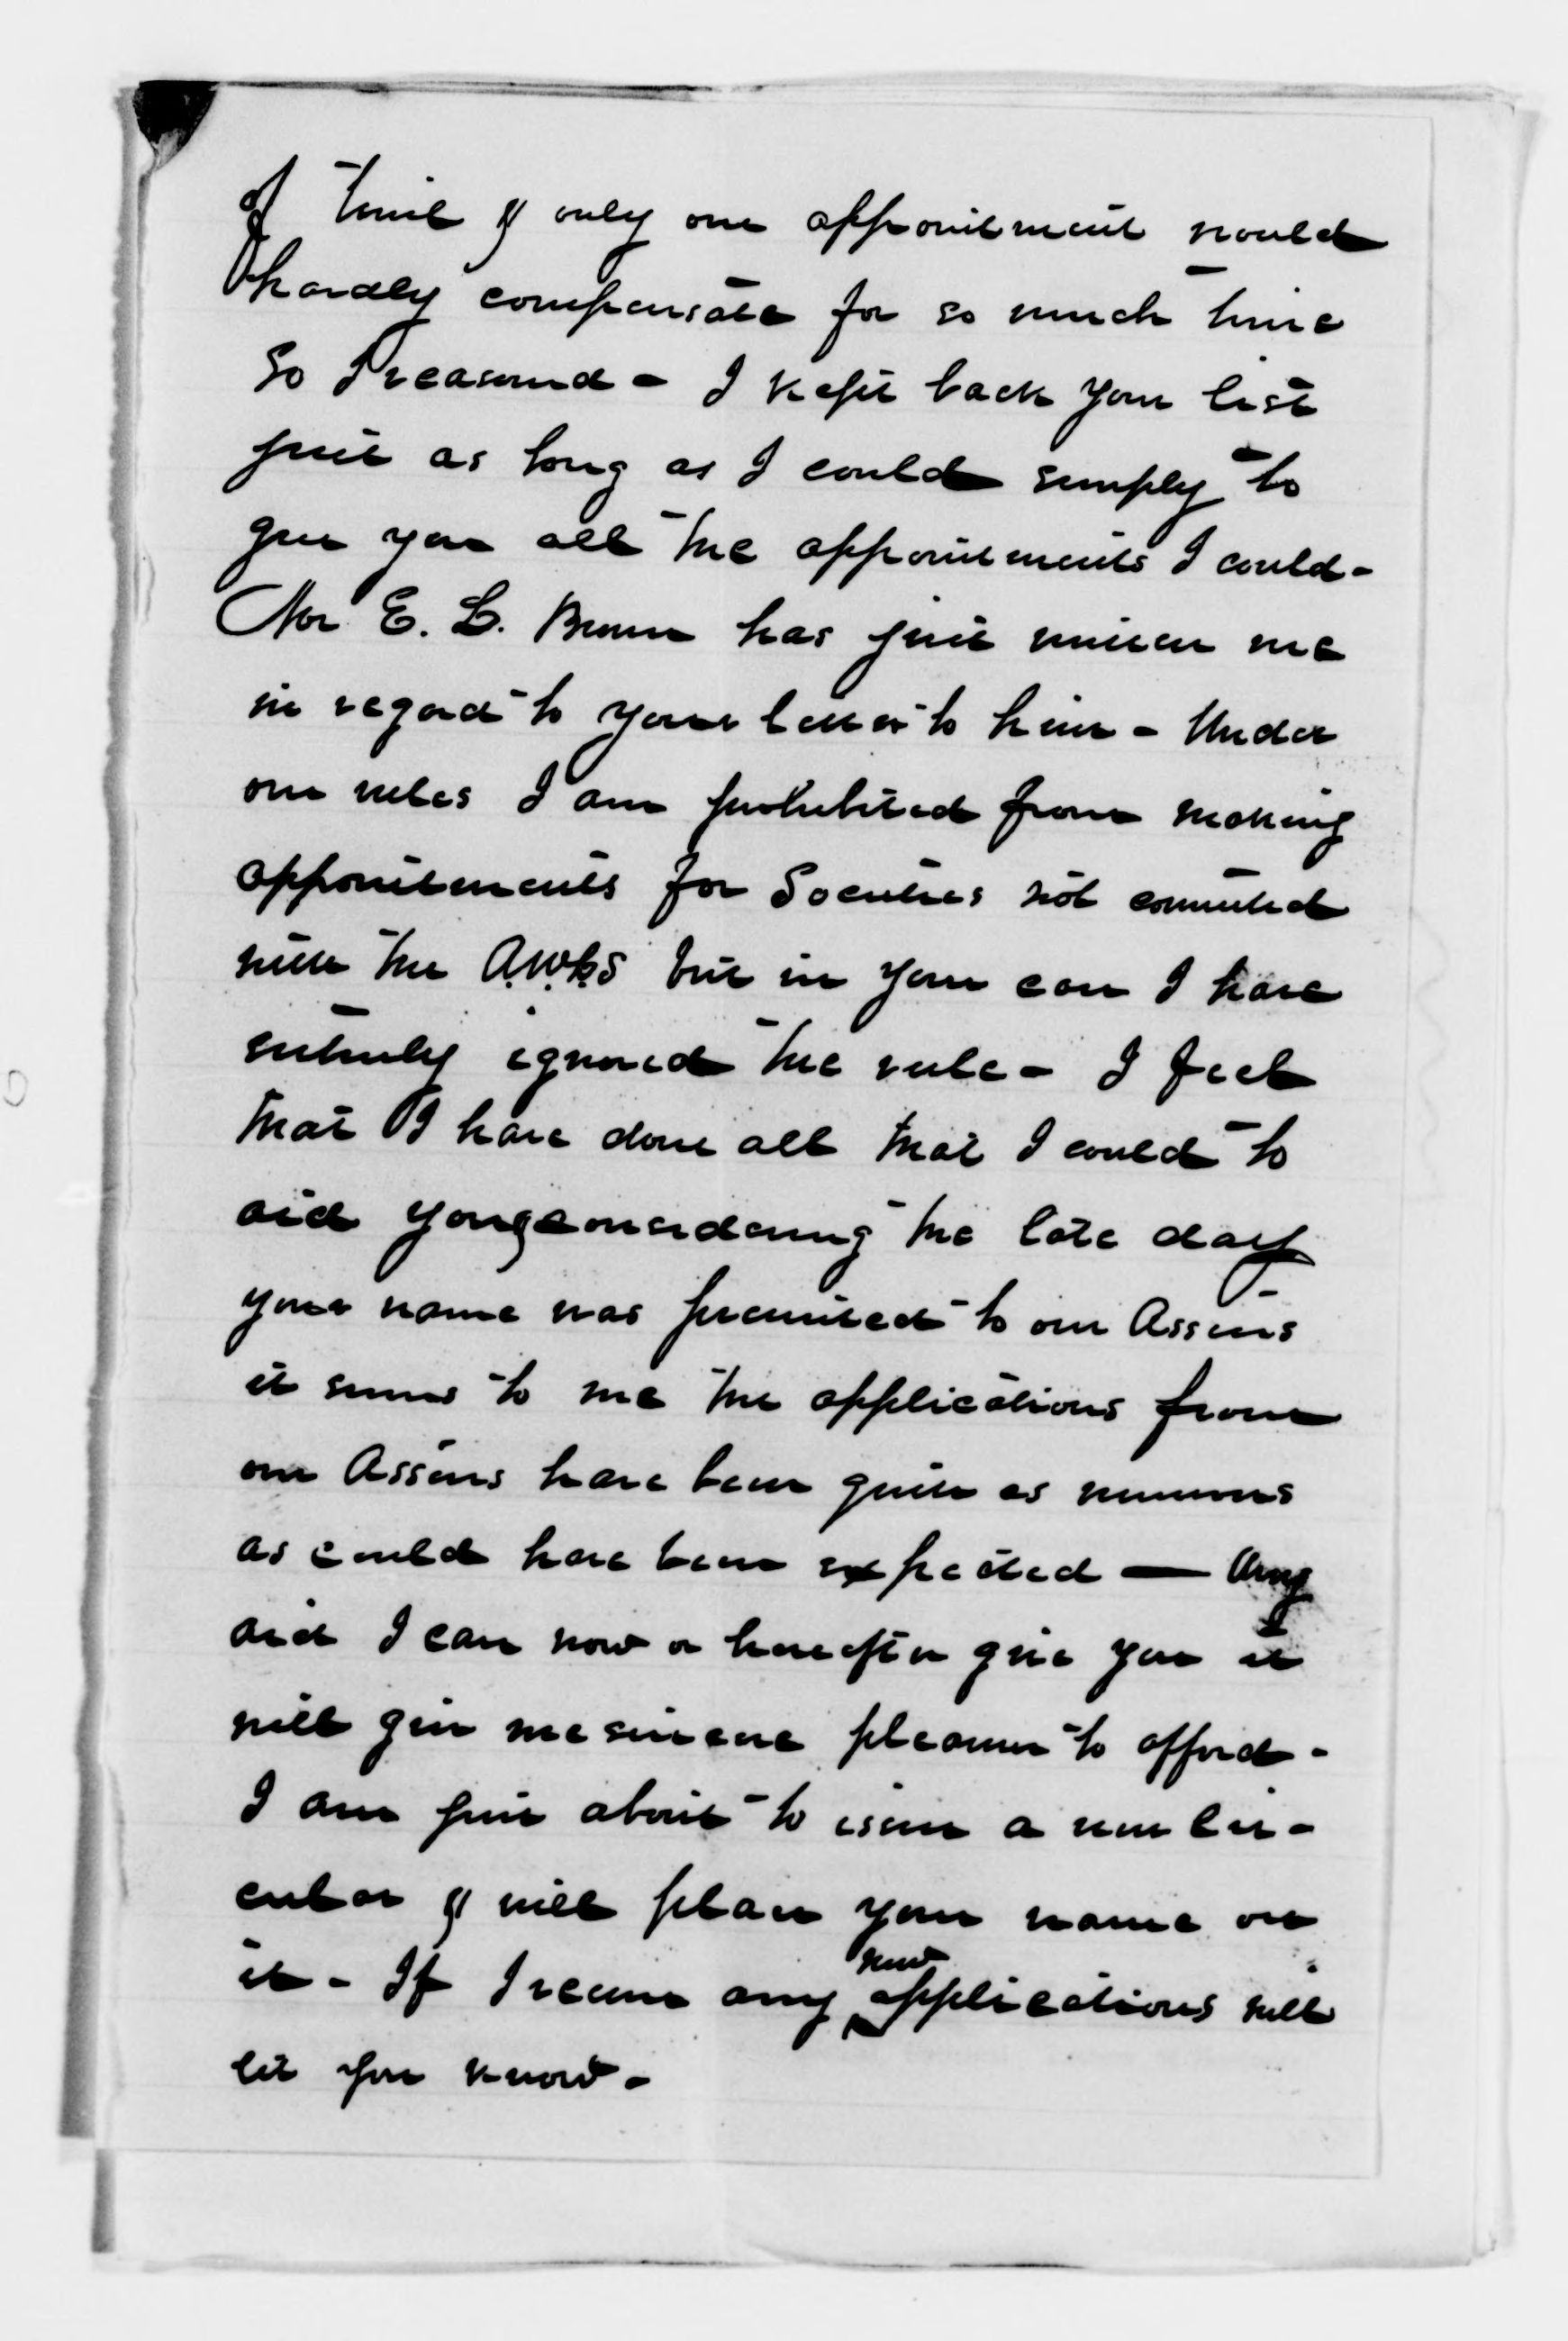 of time & only one appointment would
hardly compensate for so much time
So I reasoned - I kept back your list
just as long as I could simply to
give you all the appointments I could -
Mr E. L. Brown has just written me
in regard to your letter to him - Under
our rules I am prohibited from making
appointments for Societies not connected
with the A.W.L.S but in your case I have
entirely ignored the rule - I feel
that I have done all that I could to
aid you, considering the late day
your name was presented to our Assns
it seems to me the applications from
our Assns have been quite as numerous
as could have been expected — Any
aid I can now or hereafter give you it
will give me sincere pleasure to afford -
I am just about to issue a new Cir-
cular & will place your name on
it - If I receive any new applications will
let you know -